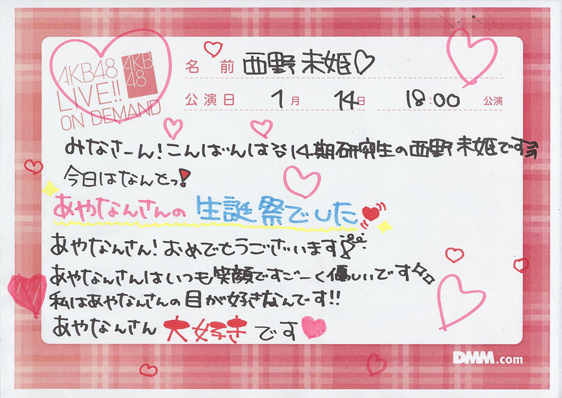 AKB48
LIVE!!
ON DEMAND
AKB
48
名前 西野未姫♡
公演日 1月 14日 18:00 公演
みなさーん!こんばんはな14期研究生の西野未姫です
今日はなんとっ!
あやなんさんの生誕祭でした
あやなんさん!おめでとうございます
あやなんさんはいつも笑顔ですごーく優しいです
私はあやなんさんの目が好きなんです!!
あやなんさん大好きです
DMM.com